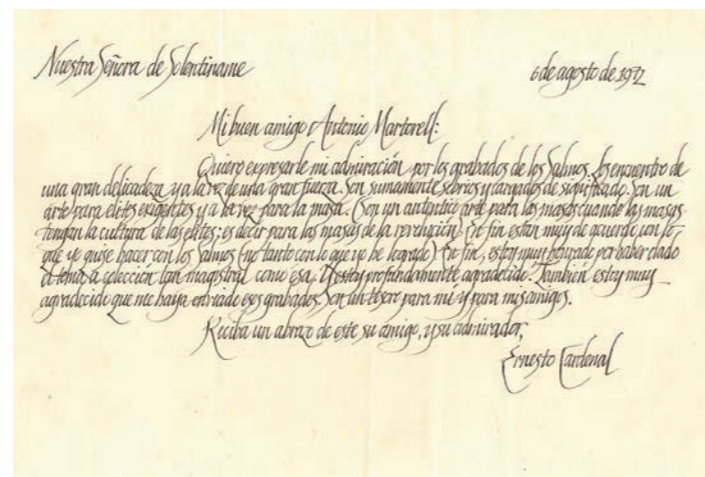 Nuestra Señora de Solentiname 6 de agosto de 1972
Mi buen amigo Antonio Martorell:
Quiero expresarle mi admiración por los grabados de los Salmos. Los encuentro de
una gran delicadeza y a la vez de una gran fuerza. Son sumamente sobrios y cargados de significado. Son un
arte para elites exigentes y a la vez para la masa. (Son un auténtico arte para las masas cuando las masas
tengan la cultura de las elites: es decir para las masas de la revolución). En fin están muy de acuerdo con lo
que yo quise hacer con los Salmos (no tanto con lo que yo he logrado). En fin, estoy muy honrado por haber dado
el tema a colección tan magistral como esa, y estoy profundamente agradecido. También estoy muy
agradecido que me haya enviado esos grabados. Son un tesoro para mí y para mis amigos.
Reciba un abrazo de este su amigo, y su admirador,
Ernesto Cardenal